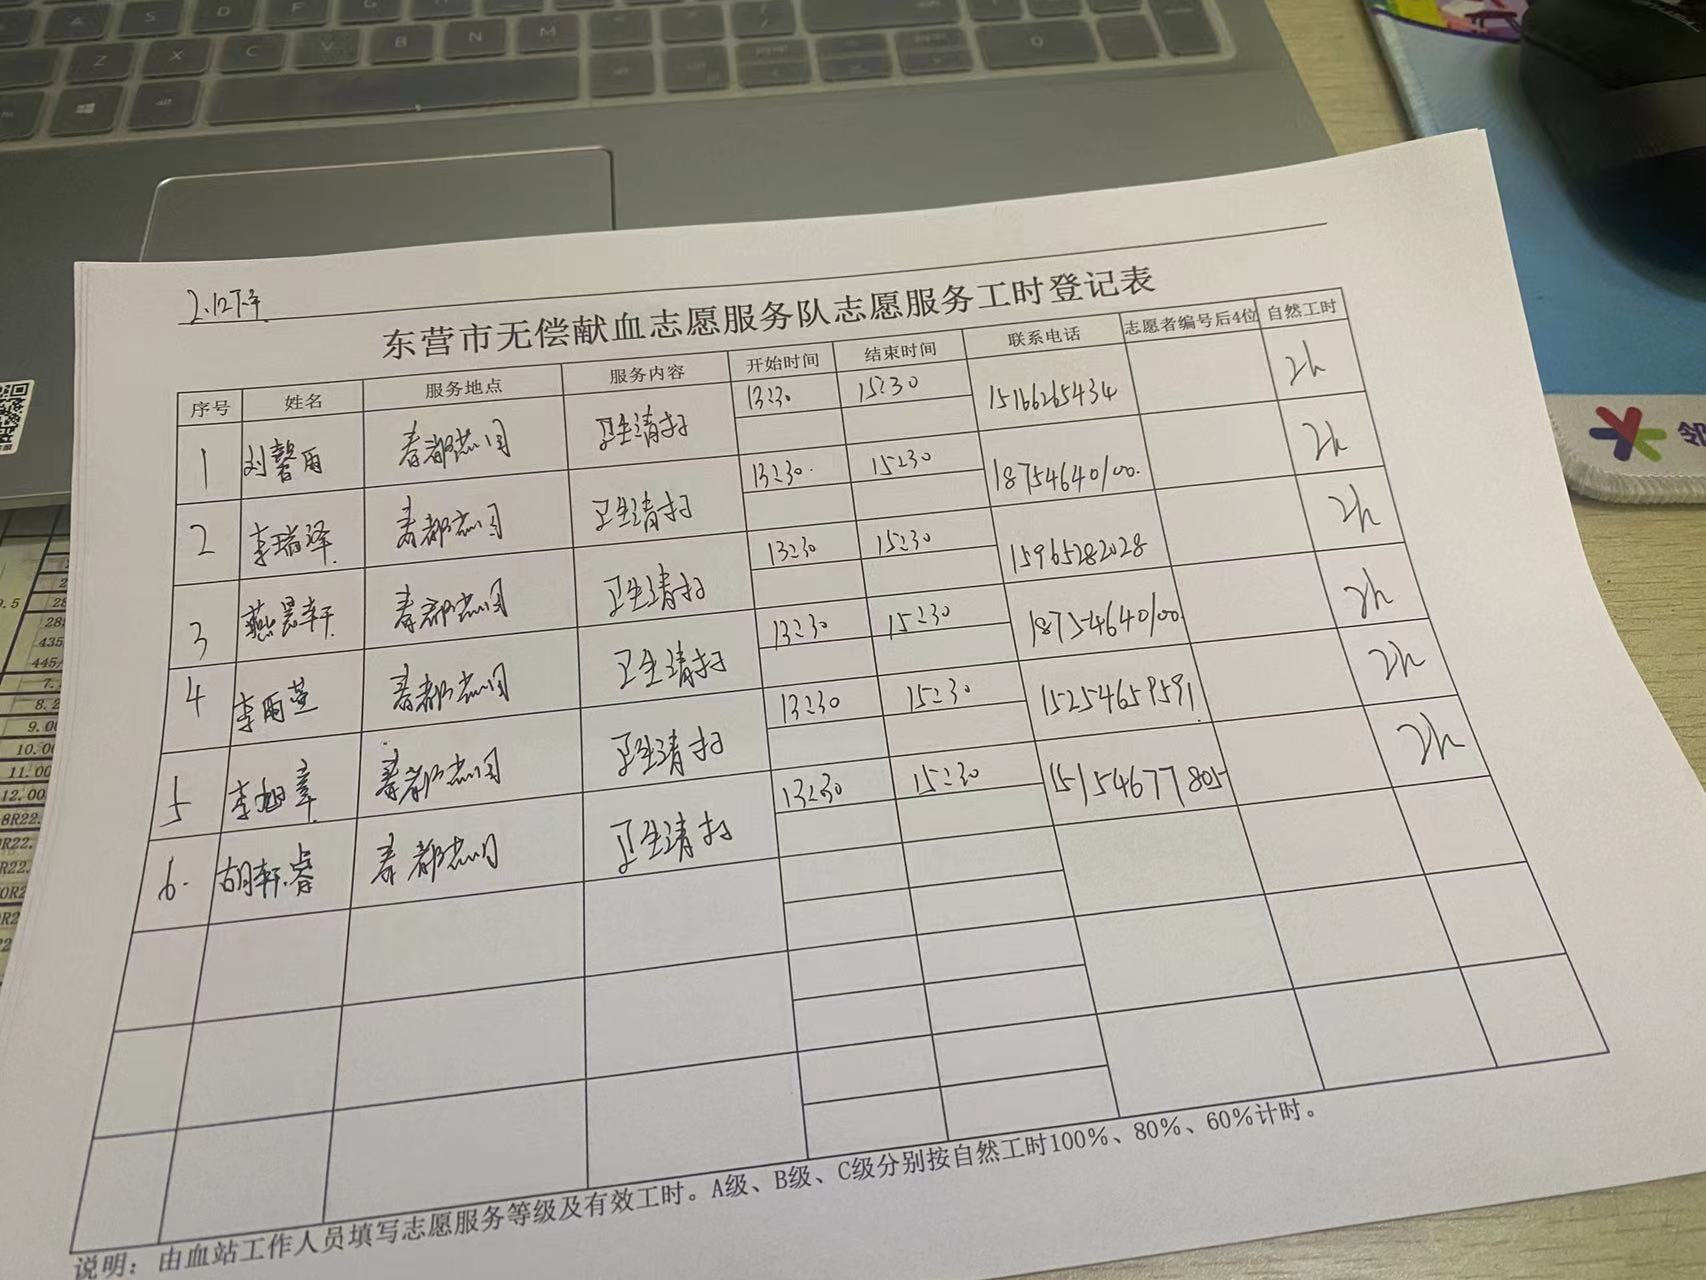 2.12下午
东营市无偿献血志愿服务队志愿服务工时登记表
序号 姓名 服务地点 服务内容 开始时间 结束时间 联系电话 志愿者编号后4位 自然工时
1 刘馨雨 春都花园 卫生清扫 13:30 15:30 15166265434 2h
2 李瑞泽 春都花园 卫生清扫 13:30 15:30 18754640100 2h
3 燕昱轩 春都花园 卫生清扫 13:30 15:30 15965282028 2h
4 李雨萱 春都花园 卫生清扫 13:30 15:30 18754640100 2h
5 李旭章 春都花园 卫生清扫 13:30 15:30 15254659591 2h
6. 胡轩睿 春都花园 卫生清扫 13:30 15:30 15154677805 2h
说明：由血站工作人员填写志愿服务等级及有效工时。A级、B级、C级分别按自然工时100%、80%、60%计时。